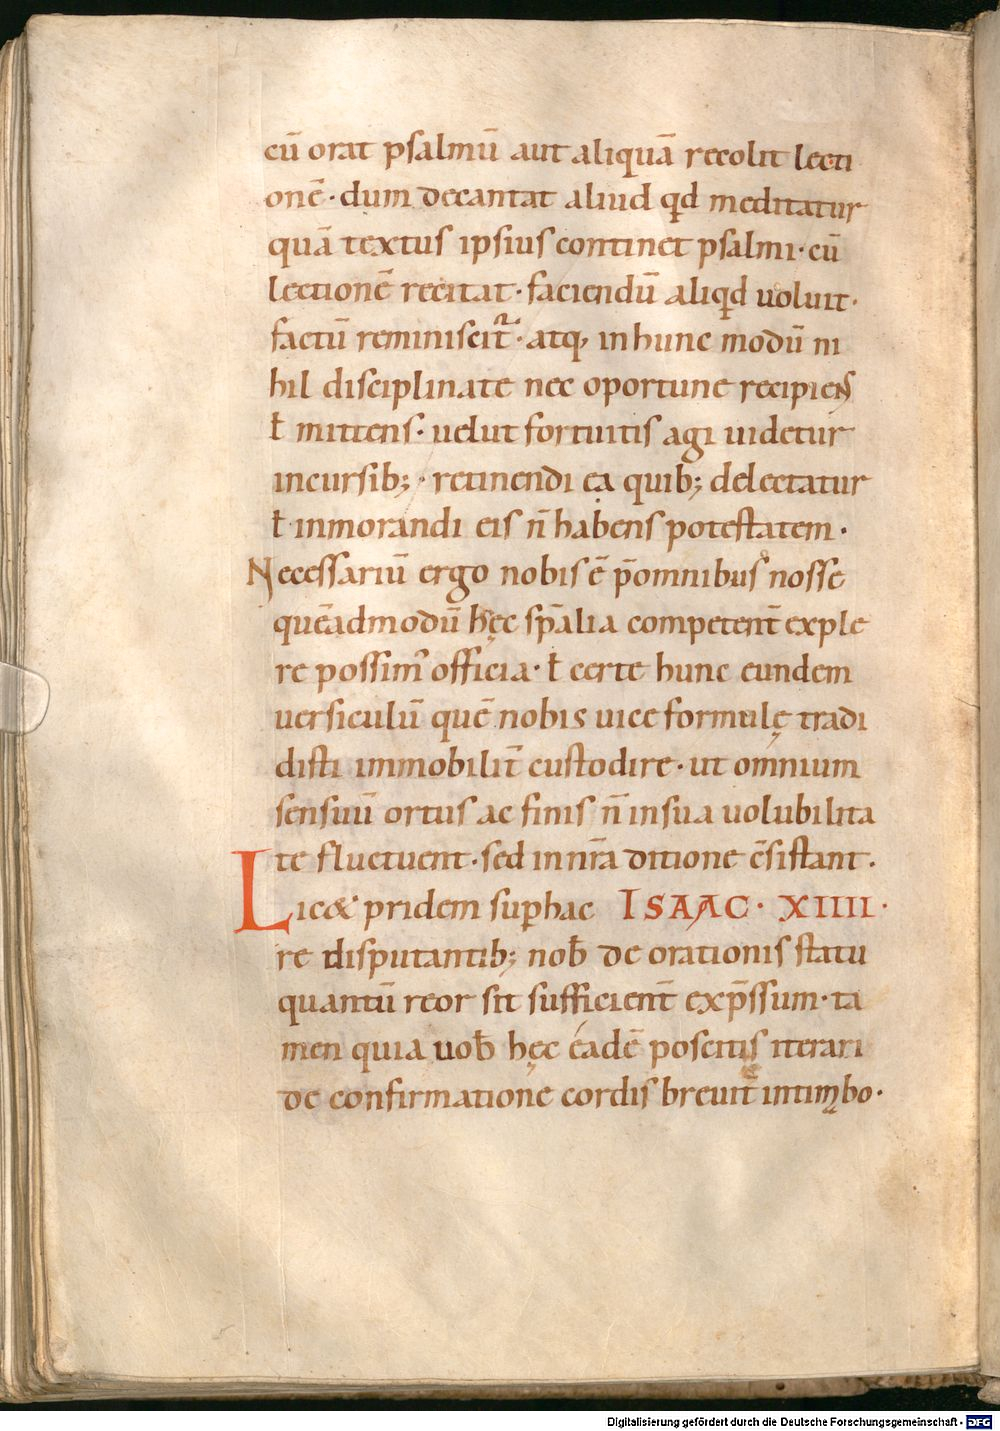 cū orat psalmū aut aliquā recolit lecti
onē · dum decantat aliud qd meditatur
quā textus ipsius continet psalmi · cū
lectionē recitat · faciendū aliqd uoluit ·
factū reminiscit᷑ · atq, in hunc modū ni
hil disciplinate nec oportune recipiens
ł mittens · uelut fortuitis agi uidetur
incursib; · retinendi ea quib; delectatur
ł inmorandi eis n̄ habens potestatem ·
Necessariū ergo nobis ē p̄ omnibus nosse
quēadmodū hęc sp̄alia competent̄ exple
re possim᷒ officia · ł certe hunc eundem
uersiculū quē nobis uice formulę tradi
disti immobilit̄ custodire · ut omnium
sensuū ortus ac finis n̄ in sua uolubilita
te fluctuent · sed in nr̄a ditione c̄sistant ·
Lic& pridem sup hac ISAAC · XIIII ·
re disputantib; nob̄ de orationis statu
quantū reor sit sufficient̄ exp̄ssum · ta
men quia uob̄ hęc eadē poscitis iterari
de confirmatione cordis breuit̄ intimabo ·
Digitalisierung gefördert durch die Deutsche Forschungsgemeinschaft - DFG